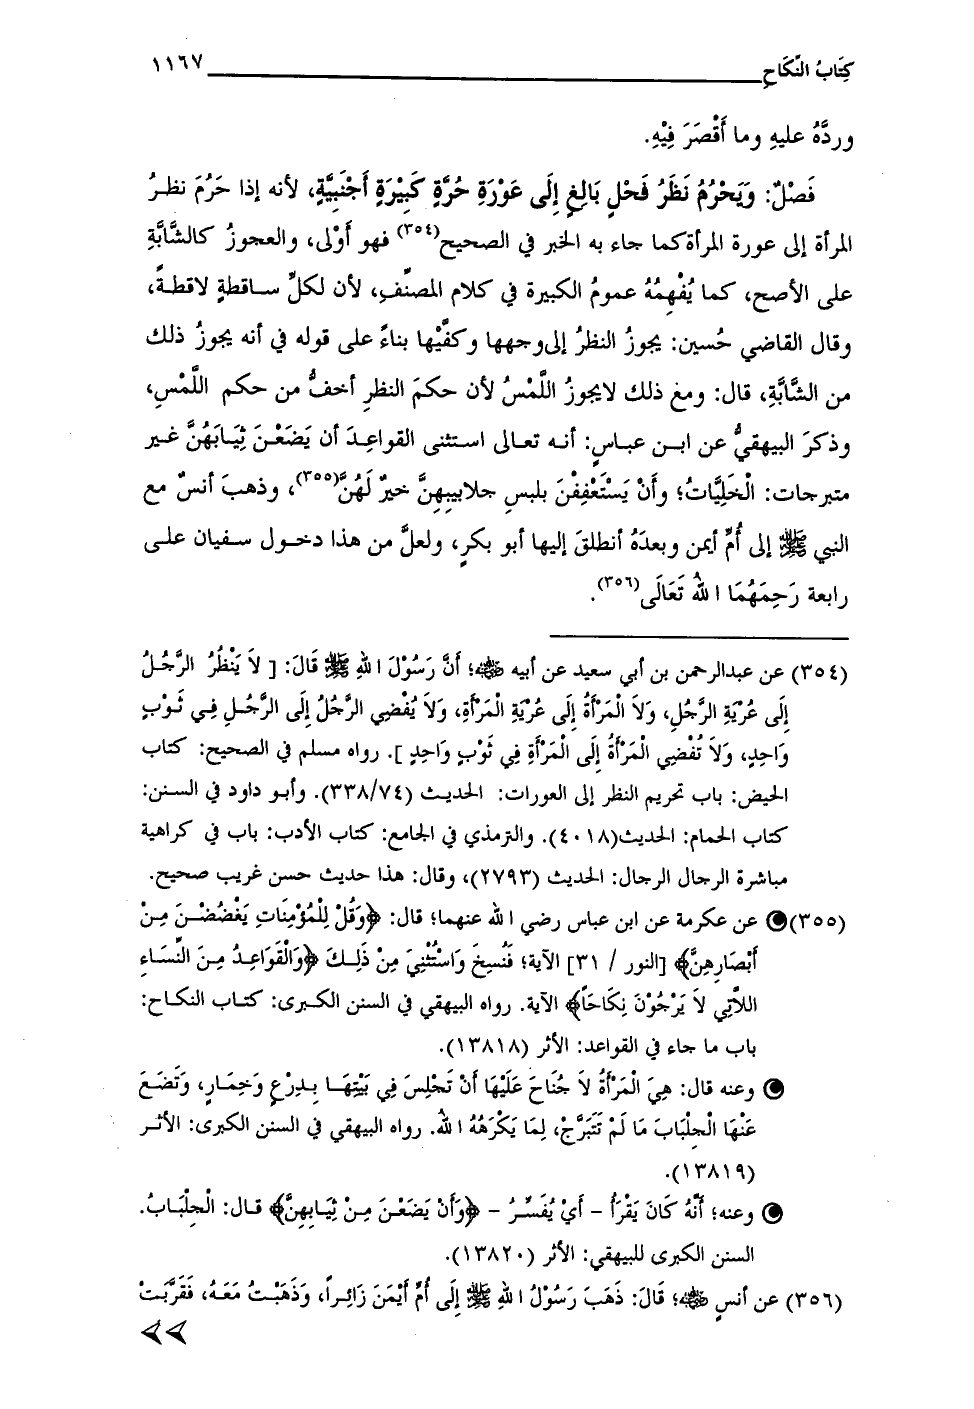 كِتَابُ النِّكَاحِ ١١٦٧
وردَّهُ عليهِ وما أَقْصَرَ فِيْهِ.
فَصْلٌ: وَيَحْرُمُ نَظَرُ فَحْلٍ بَالِغٍ إِلَى عَوْرَةِ حُرَّةٍ كَبِيْرَةٍ أَجْنَبِيَّةٍ، لأنه إذا حَرُمَ نظرُ
المرأة إلى عورة المرأة كما جاء به الخبر في الصحيح(٣٥٤) فهو أَوْلى، والعجوزُ كالشَّابَّةِ
على الأصح، كما يُفْهِمُهُ عمومُ الكبيرة في كلام المصنِّفِ، لأن لكلِّ ساقطةٍ لاقطةً،
وقال القاضي حُسين: يجوزُ النظرُ إلى وجهها وكفَّيْها بناءً على قوله في أنه يجوزُ ذلك
من الشَّابَّةِ، قال: ومغ ذلك لايجوزُ اللَّمْسُ لأن حكمَ النظرِ أخفُّ من حكم اللَّمْسِ،
وذكرَ البيهقيُّ عن ابن عباسٍ: أنه تعالى استثنى القواعِدَ أن يَضَعْنَ ثِيَابَهُنَّ غير
متبرجات: الْخَلِيَّاتُ؛ وأَنْ يَسْتَعْفِفْنَ بلبسِ جلابيبِهِنَّ خيرٌ لَهُنَّ(٣٥٥)، وذهبَ أنسٌ مع
النبي ﷺ إلى أُمِّ أيمن وبعدَهُ أنطلقَ إليها أبو بكرٍ، ولعلَّ من هذا دخول سفيان على
رابعة رَحِمَهُمَا اللهُ تَعَالَى(٣٥٦).
(٣٥٤) عن عبدالرحمن بن أبي سعيد عن أبيه ﷺ؛ أنَّ رَسُوْلَ اللهِ ﷺ قَالَ: [ لاَ يَنْظُرُ الرَّجُلُ
إِلَى عُرْيَةِ الرَّجُلِ، وَلاَ الْمَرْأَةُ إِلَى عُرْيَةِ الْمَرْأَةِ، وَلاَ يُفْضِي الرَّجُلُ إِلَى الرَّجُلِ فِي ثَوْبٍ
وَاحِدٍ، وَلاَ تُفْضِي الْمَرْأَةُ إِلَى الْمَرْأَةِ فِي ثَوْبٍ وَاحِدٍ ]. رواه مسلم في الصحيح: كتاب
الحيض: باب تحريم النظر إلى العورات: الحديث (٣٣٨/٧٤). وأبو داود في السنن:
كتاب الحمام: الحديث(٤٠١٨). والترمذي في الجامع: كتاب الأدب: باب في كراهية
مباشرة الرجال الرجال: الحديث (٢٧٩٣)، وقال: هذا حديث حسن غريب صحيح.
(٣٥٥) عن عكرمة عن ابن عباس رضي الله عنهما؛ قال: ﴿وَقُلْ لِلْمُؤْمِنَاتِ يَغْضُضْنَ مِنْ
أَبْصَارِهِنَّ﴾ [النور / ٣١] الآية؛ فَنُسِخَ وَاسْتُثْنِيَ مِنْ ذَلِكَ ﴿وَالْقَوَاعِدُ مِنَ النِّسَاءِ
اللاَّتِي لاَ يَرْجُوْنَ نِكَاحَاً﴾ الآية. رواه البيهقي في السنن الكبرى: كتاب النكاح:
باب ما جاء في القواعد: الأثر (١٣٨١٨).
وعنه قال: هِيَ الْمَرْأَةُ لاَ جُنَاحَ عَلَيْهَا أَنْ تَجْلِسَ فِي بَيْتِهَا بِدِرْعٍ وَخِمَارٍ، وَتَضَعَ
عَنْهَا الْجِلْبَابَ مَا لَمْ تَتَبَرَّجْ، لِمَا يَكْرَهُهُ اللهُ. رواه البيهقي في السنن الكبرى: الأثر
(١٣٨١٩).
وعنه؛ أَنَّهُ كَانَ يَقْرَأُ - أَيْ يُفَسِّرُ - ﴿وَأَنْ يَضَعْنَ مِنْ ثِيَابِهِنَّ﴾ قال: الْجِلْبَابُ.
السنن الكبرى للبيهقي: الأثر (١٣٨٢٠).
(٣٥٦) عن أنسٍ ﷺ؛ قَالَ: ذَهَبَ رَسُوْلُ اللهِ ﷺ إِلَى أُمِّ أَيْمَنَ زَائِراً، وَذَهَبْتُ مَعَهُ، فَقَرَّبَتْ